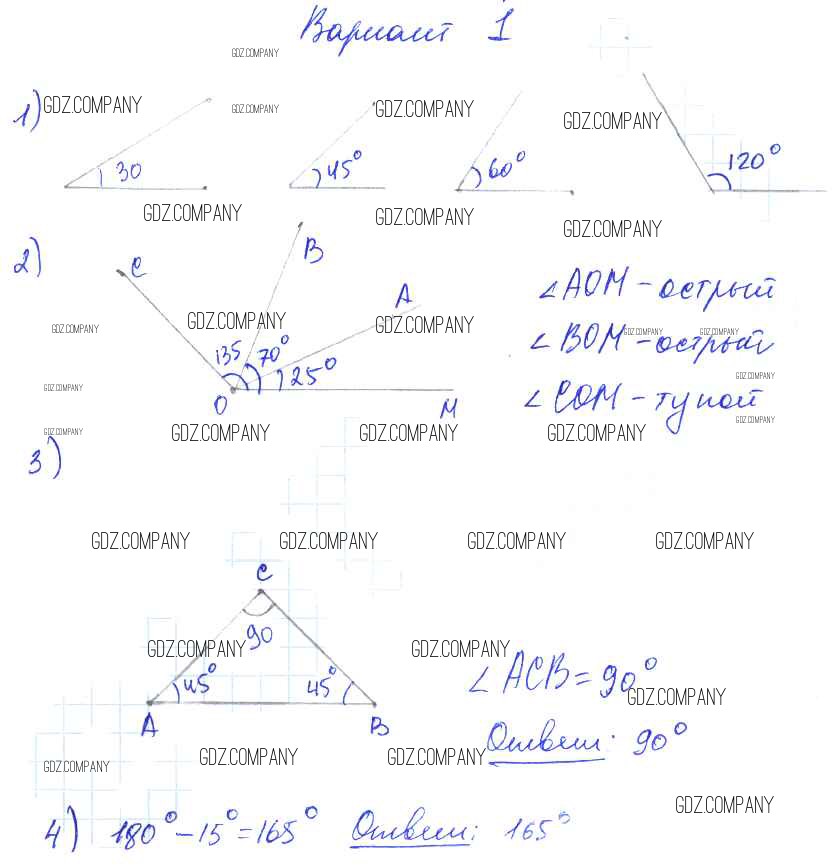 Вариант 1
GDZ.COMPANY
1) GDZ.COMPANY GDZ.COMPANY GDZ.COMPANY GDZ.COMPANY
30 45° 60° 120°
GDZ.COMPANY GDZ.COMPANY GDZ.COMPANY
2) C B A
∠AOM - острый
GDZ.COMPANY GDZ.COMPANY GDZ.COMPANY GDZ.COMPANY GDZ.COMPANY
∠BOM - острый
135 70° 25°
GDZ.COMPANY GDZ.COMPANY
O M
∠COM - тупой
GDZ.COMPANY
GDZ.COMPANY GDZ.COMPANY GDZ.COMPANY GDZ.COMPANY
3)
GDZ.COMPANY GDZ.COMPANY GDZ.COMPANY GDZ.COMPANY
C
90
GDZ.COMPANY GDZ.COMPANY
45° 45°
∠ACB = 90°
GDZ.COMPANY
A B
Ответ: 90°
GDZ.COMPANY GDZ.COMPANY GDZ.COMPANY
GDZ.COMPANY
4) 180° - 15° = 165° Ответ: 165°